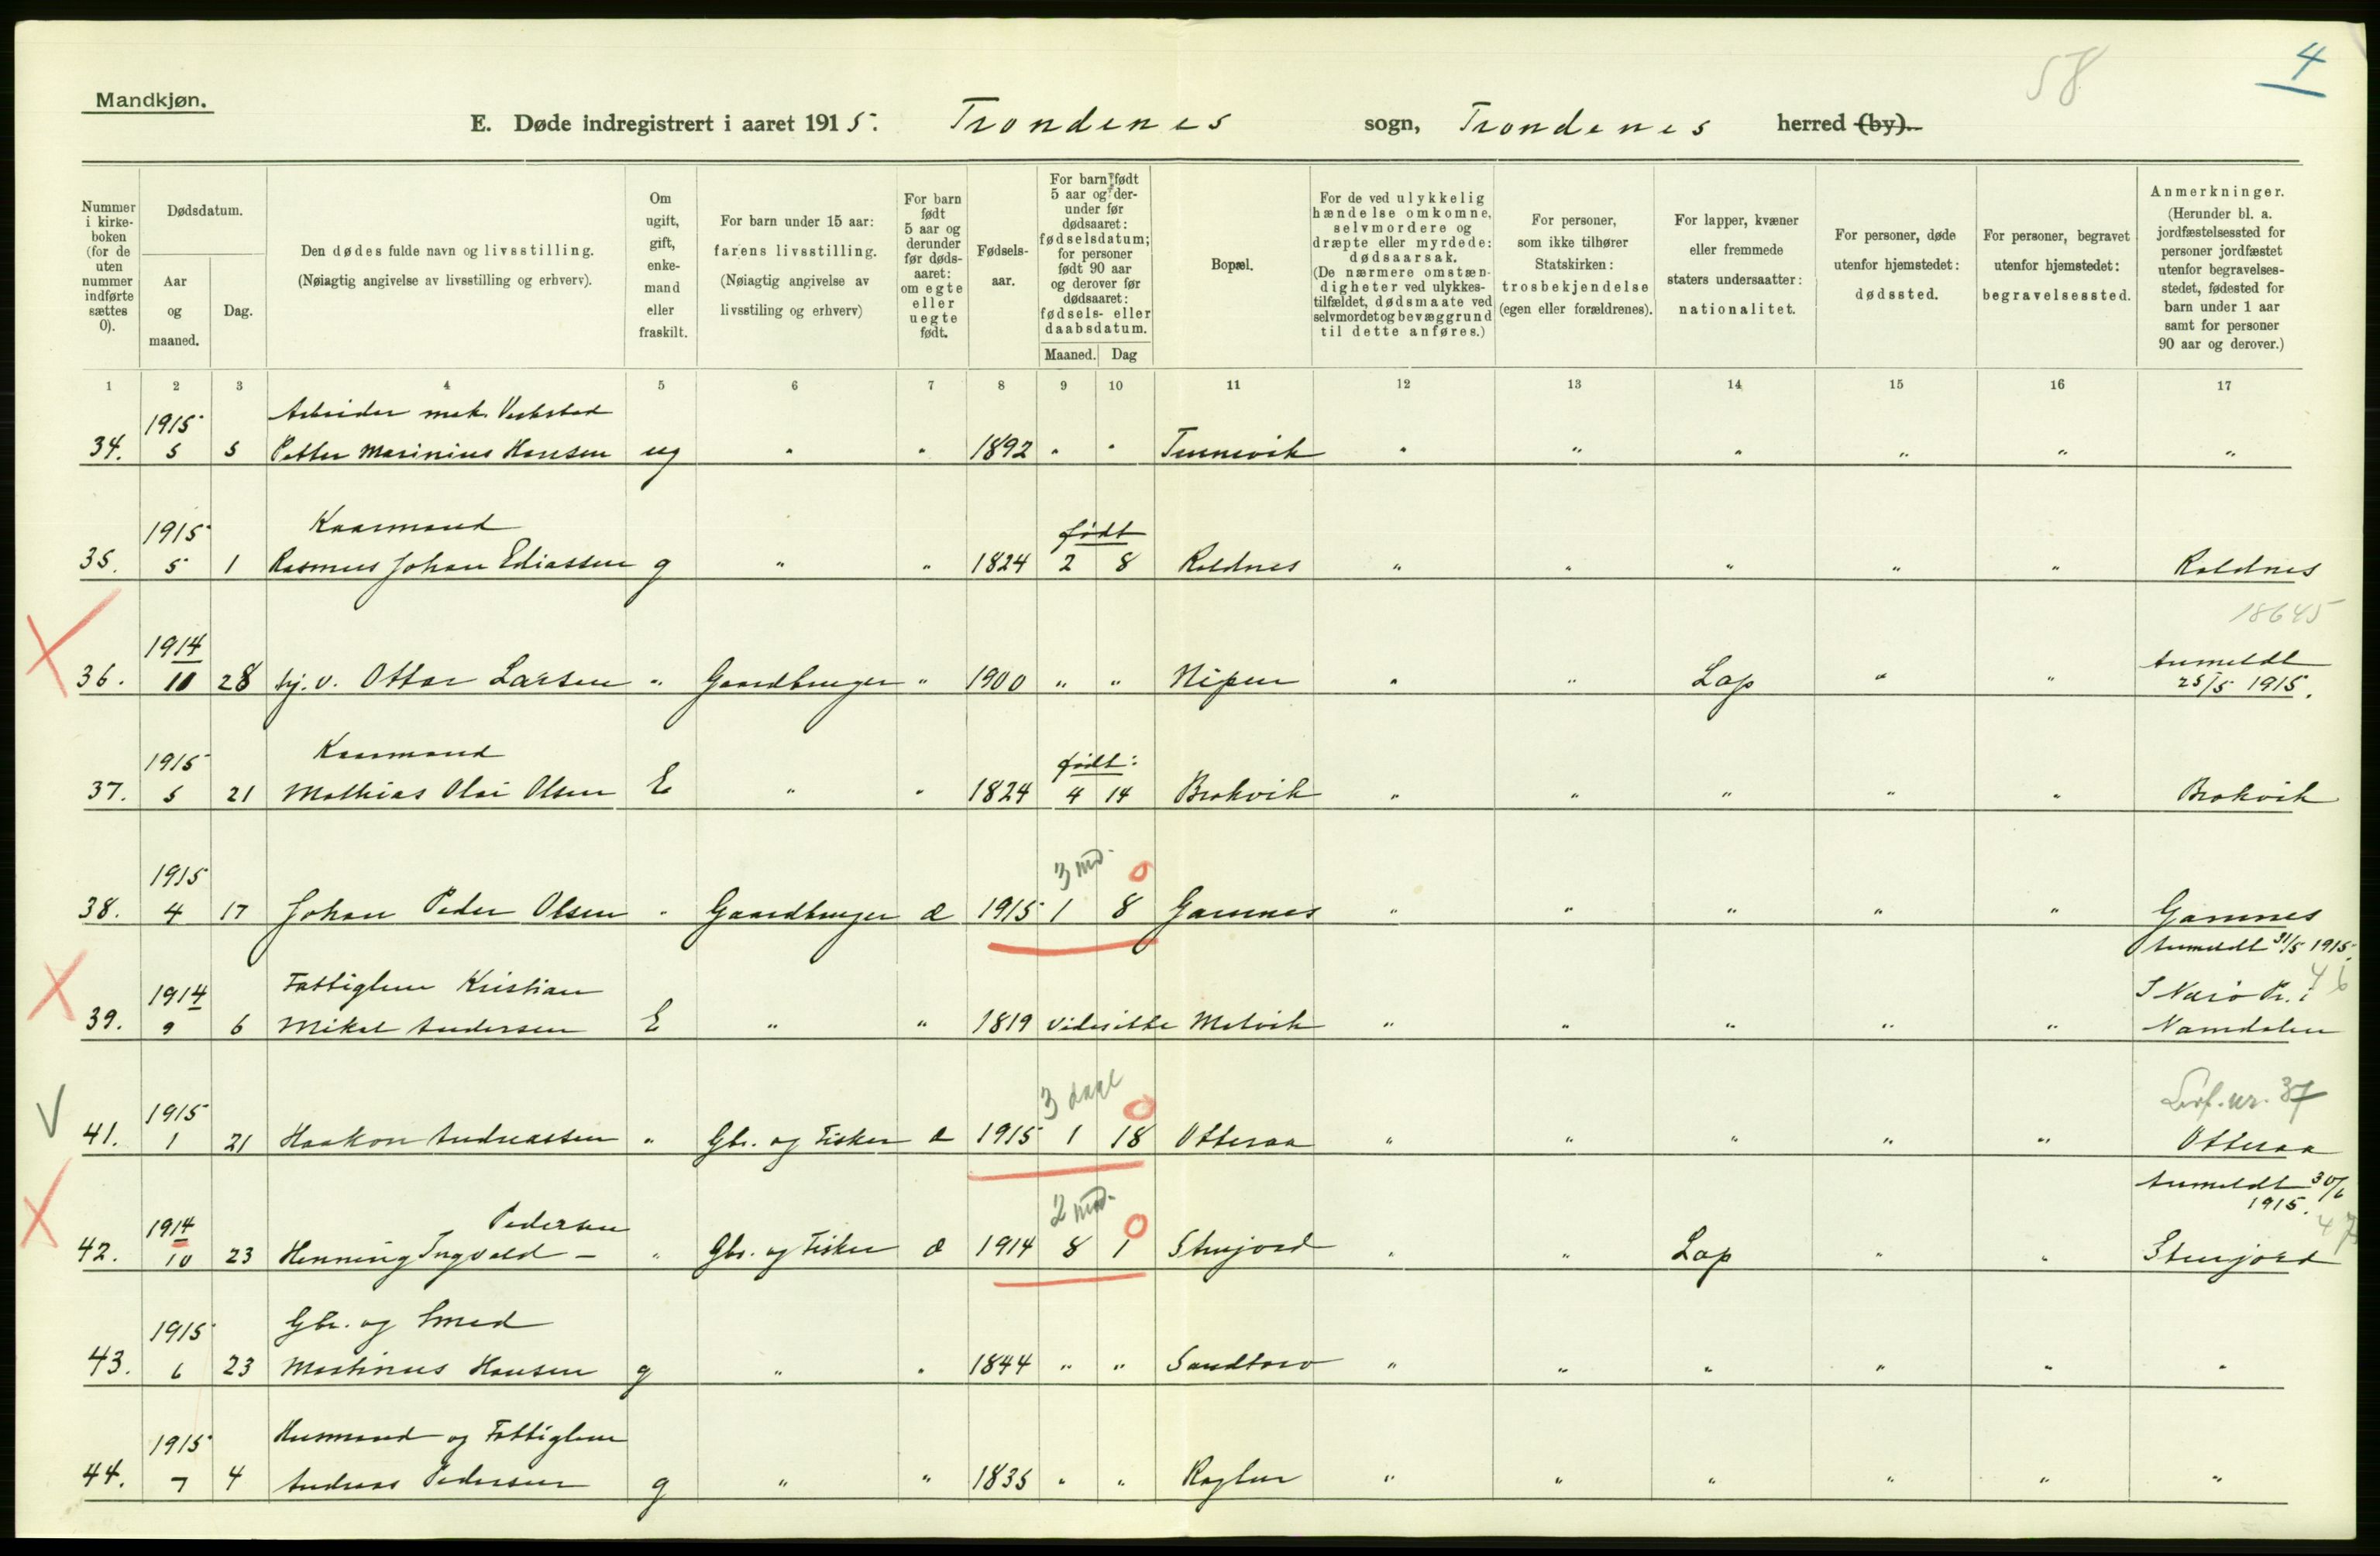 58
4
Mandkjøn.
E. Døde indregistrert i aaret 1915. Trondenes sogn, Trondenes herred (by).
Nummer i kirke-boken (for de uten nummer indførte sættes 0).
Dødsdatum.
Aar og maaned.
Dag.
Den dødes fulde navn og livsstilling.
(Nøiagtig angivelse av livsstilling og erhverv).
Om ugift, gift, enke-mand eller fraskilt.
For barn under 15 aar: farens livsstilling.
(Nøiagtig angivelse av livsstiling og erhverv)
For barn født 5 aar og derunder før døds-aaret: om egte eller uegte født.
Fødsels-aar.
For barn født 5 aar og der-under før dødsaaret: fødselsdatum; for personer født 90 aar og derover før dødsaaret: fødsels- eller daabsdatum.
Maaned. Dag
Bopæl.
For de ved ulykkelig hændelse omkomne, selvmordere og dræpte eller myrdede: dødsaarsak.
(De nærmere omstæn-digheter ved ulykkes-tilfældet, dødsmaate ved selvmordet og bevæggrund til dette anføres.)
For personer, som ikke tilhører Statskirken: trosbekjendelse (egen eller forældrenes).
For lapper, kvæner eller fremmede staters undersaatter: nationalitet.
For personer, døde utenfor hjemstedet: dødssted.
For personer, begravet utenfor hjemstedet: begravelsessted.
Anmerkninger.
(Herunder bl. a. jordfæstelsessted for personer jordfæstet utenfor begravelses-stedet, fødested for barn under 1 aar samt for personer 90 aar og derover.)
1 2 3 4 5 6 7 8 9 10 11 12 13 14 15 16 17
1915 Arbeider mek. Verksted
34. 5 5 Petter Marinius Hansen ug " " 1892 " " Tennevik " " " " " "
1915 Kaarmand født
35. 5 1 Rasmus Johan Ediassen g " " 1824 2 8 Roldnes " " " " " Roldnes
18645
1914 Anmeldt
36. 10 28 tj. v. Ottar Larsen " Gaardbruger " 1900 " " Nipen " " Lap " " 25/5 1915.
1915 Kaarmand født:
37. 5 21 Mathias Olai Olsen E " " 1824 4 14 Brokvik " " " " " Brokvik
1915 3 md. 0
38. 4 17 Johan Peder Olsen " Gaardbruger e 1915 1 8 Gamnes " " " " " Gamnes
Anmeldt 31/5 1915.
46
1914 Fattiglem Kristian
39. 9 6 Mikal Andersen E " " 1819 Vides ikke Melvik " " " " " Namdalen
3 dage 0 Lvf. nr. 37
1915
41. 1 21 Haakon Andreassen " Gbr. og Fisker e 1915 1 18 Otteraa " " " " " Otteraa
Anmeldt 30/6 1915.
47
1914 Pedersen 2 md. 0
42. 10 23 Henning Ingvald – " Gbr. og Fisker e 1914 8 1 Stenjord " " Lap " " Stenjord
1915 Gbr. og Smed
43. 6 23 Martinus Hansen g " " 1844 " " Sandtorv " " " " " "
1915 Husmand og Fattiglem
44. 7 4 Andreas Pedersen g " " 1835 " " " " " " " "